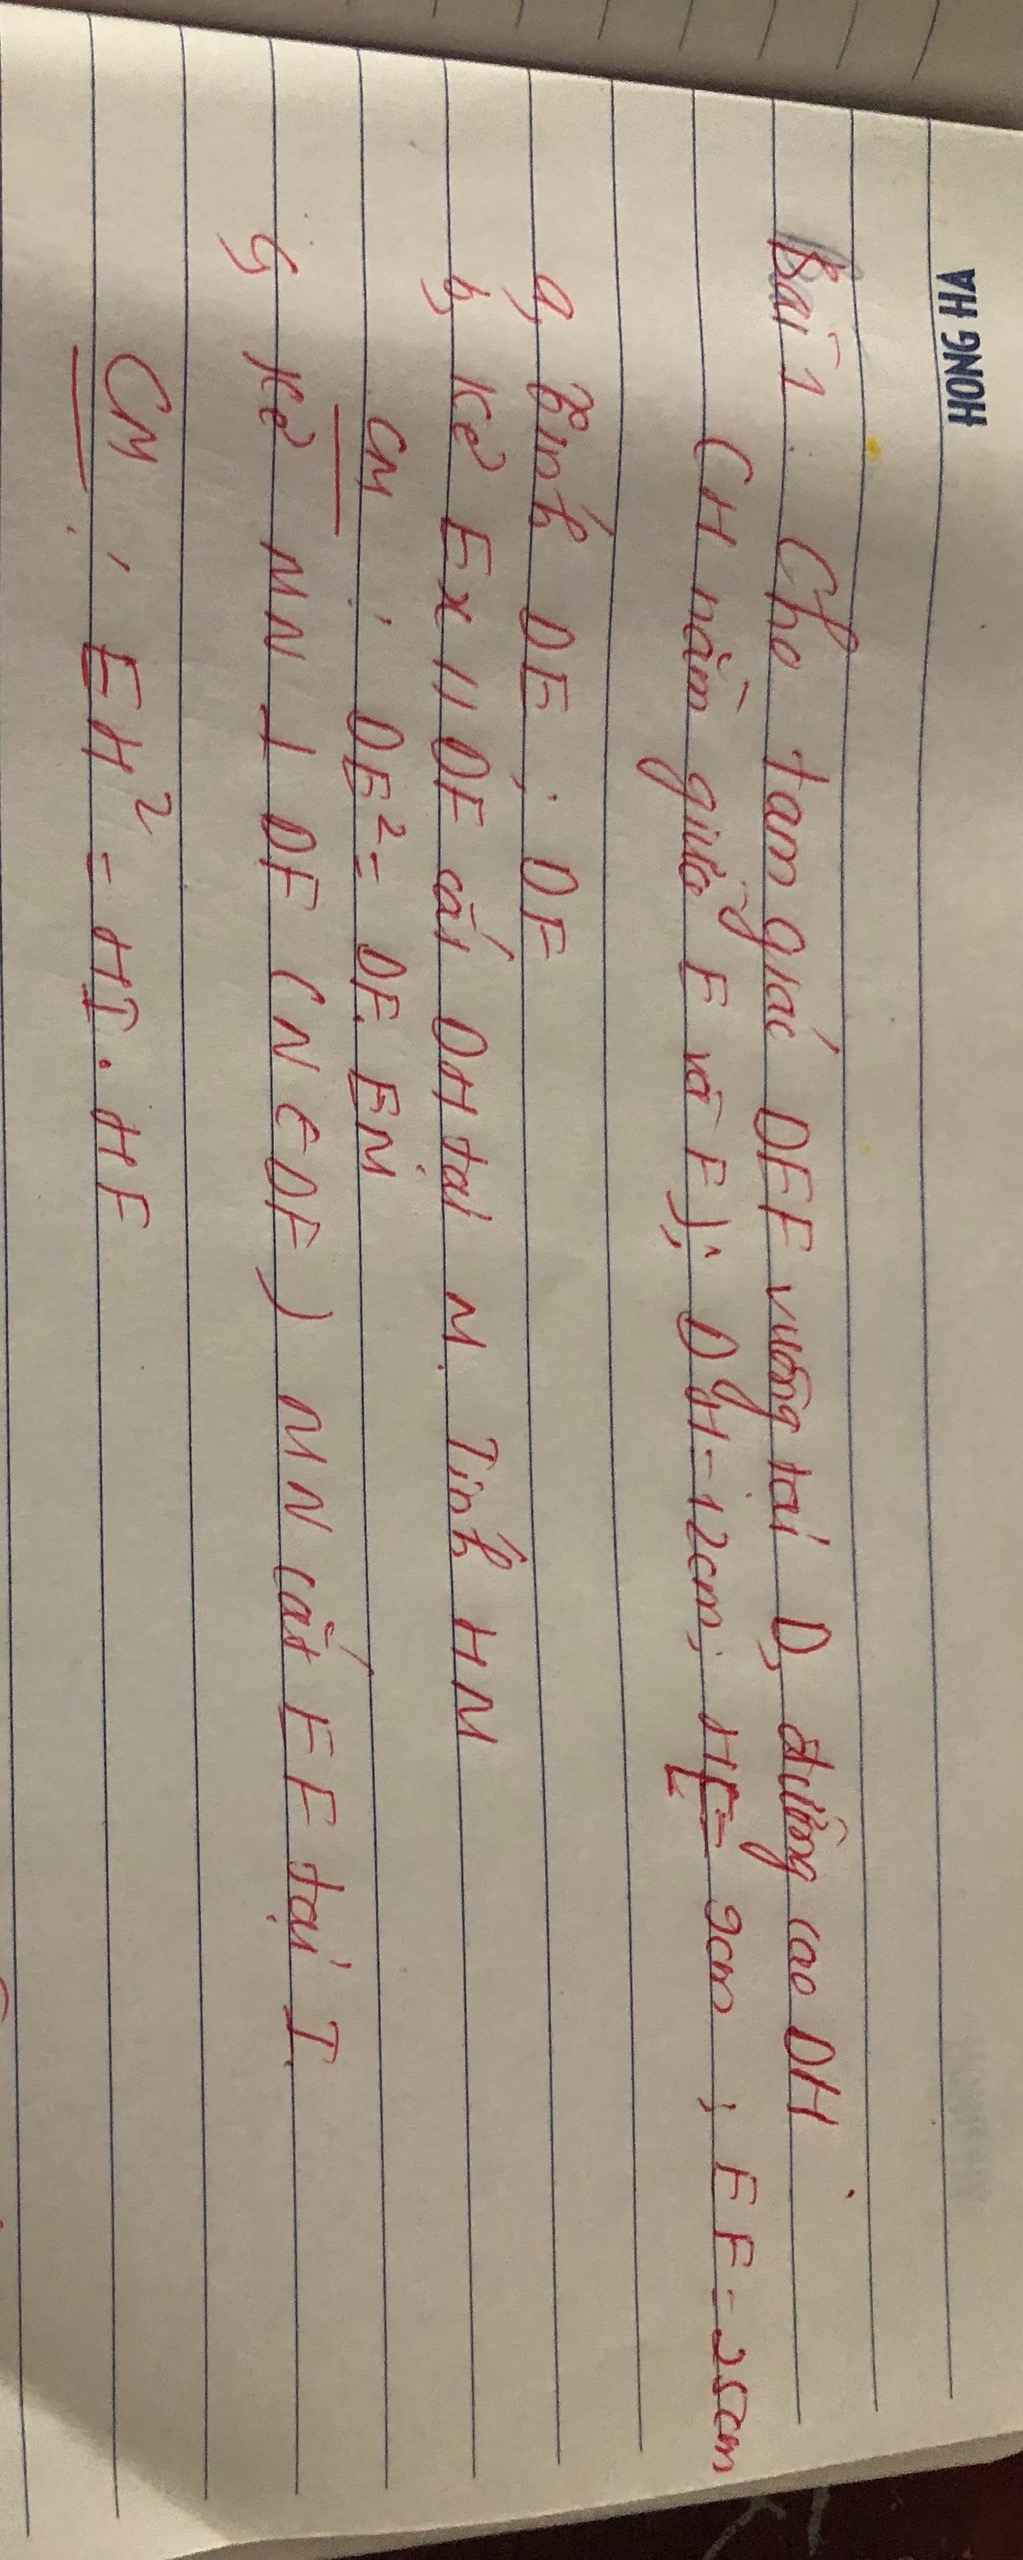 HONG HA
Bài 1. Cho tam giác DEF vuông tại D, đường cao DH
(H nằm giữa E và F); DH=12cm; HE= 9cm ; EF=25cm
a, Tính DE; DF
b, Kẻ Ex // DF cắt DH tại M. Tính HM
CM : DE² = DF. EM
c, Kẻ MN ⊥ DF (N ∈ DF) MN cắt EF tại I.
CM : EH² = HI. HF